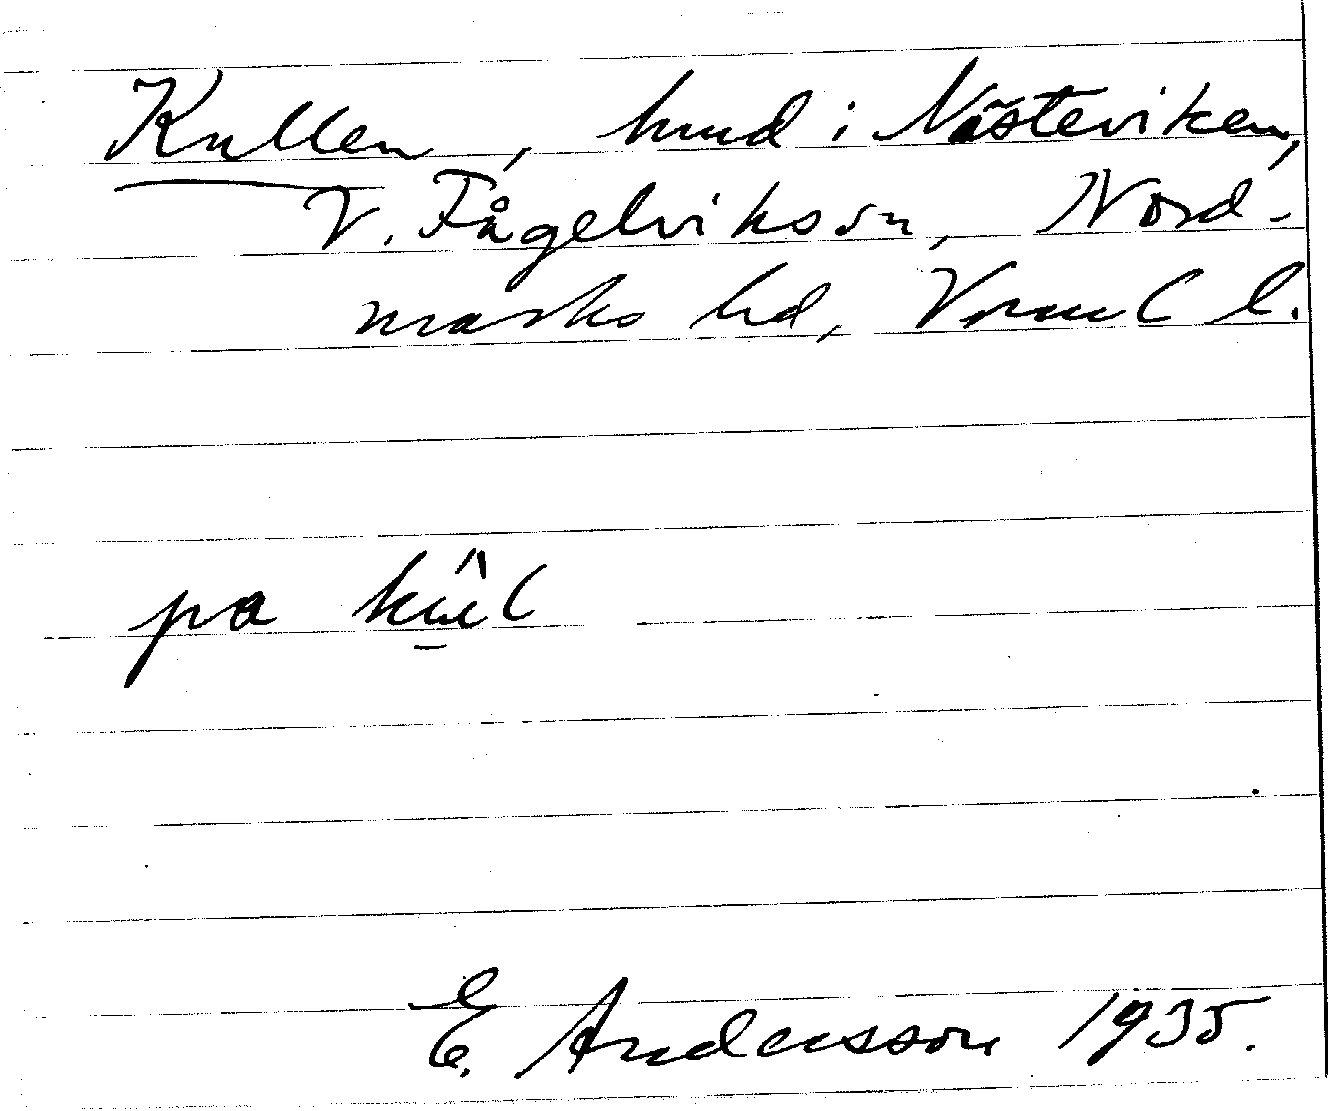 Kullen, hmd i Nästeviken,
V. Fågelviks sn, Nord-
marks hd, Vrml l.
pa
E. Andersson 1935.